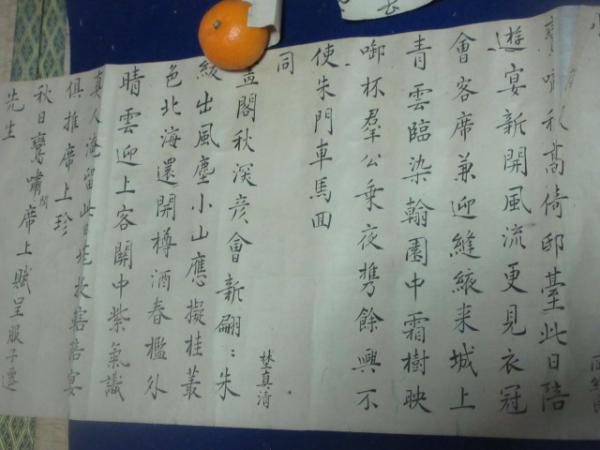 秋高倚邸臺此日陪
遊宴新開風流更見衣冠
會客席兼迎縫掖来城上
青雲臨染翰園中霜樹映
啣杯羣公乗夜携餘興不
使朱門車馬回
同
埜真清
閣秋深彦會新翩〻朱
紱出風塵小山應擬桂叢
色北海還開樽酒春檻外
晴雲迎上客關中紫氣識
真人淹留此日堪投轄陪宴
俱推席上珍
秋日鸞嘯閣席上賦呈服子遷
先生